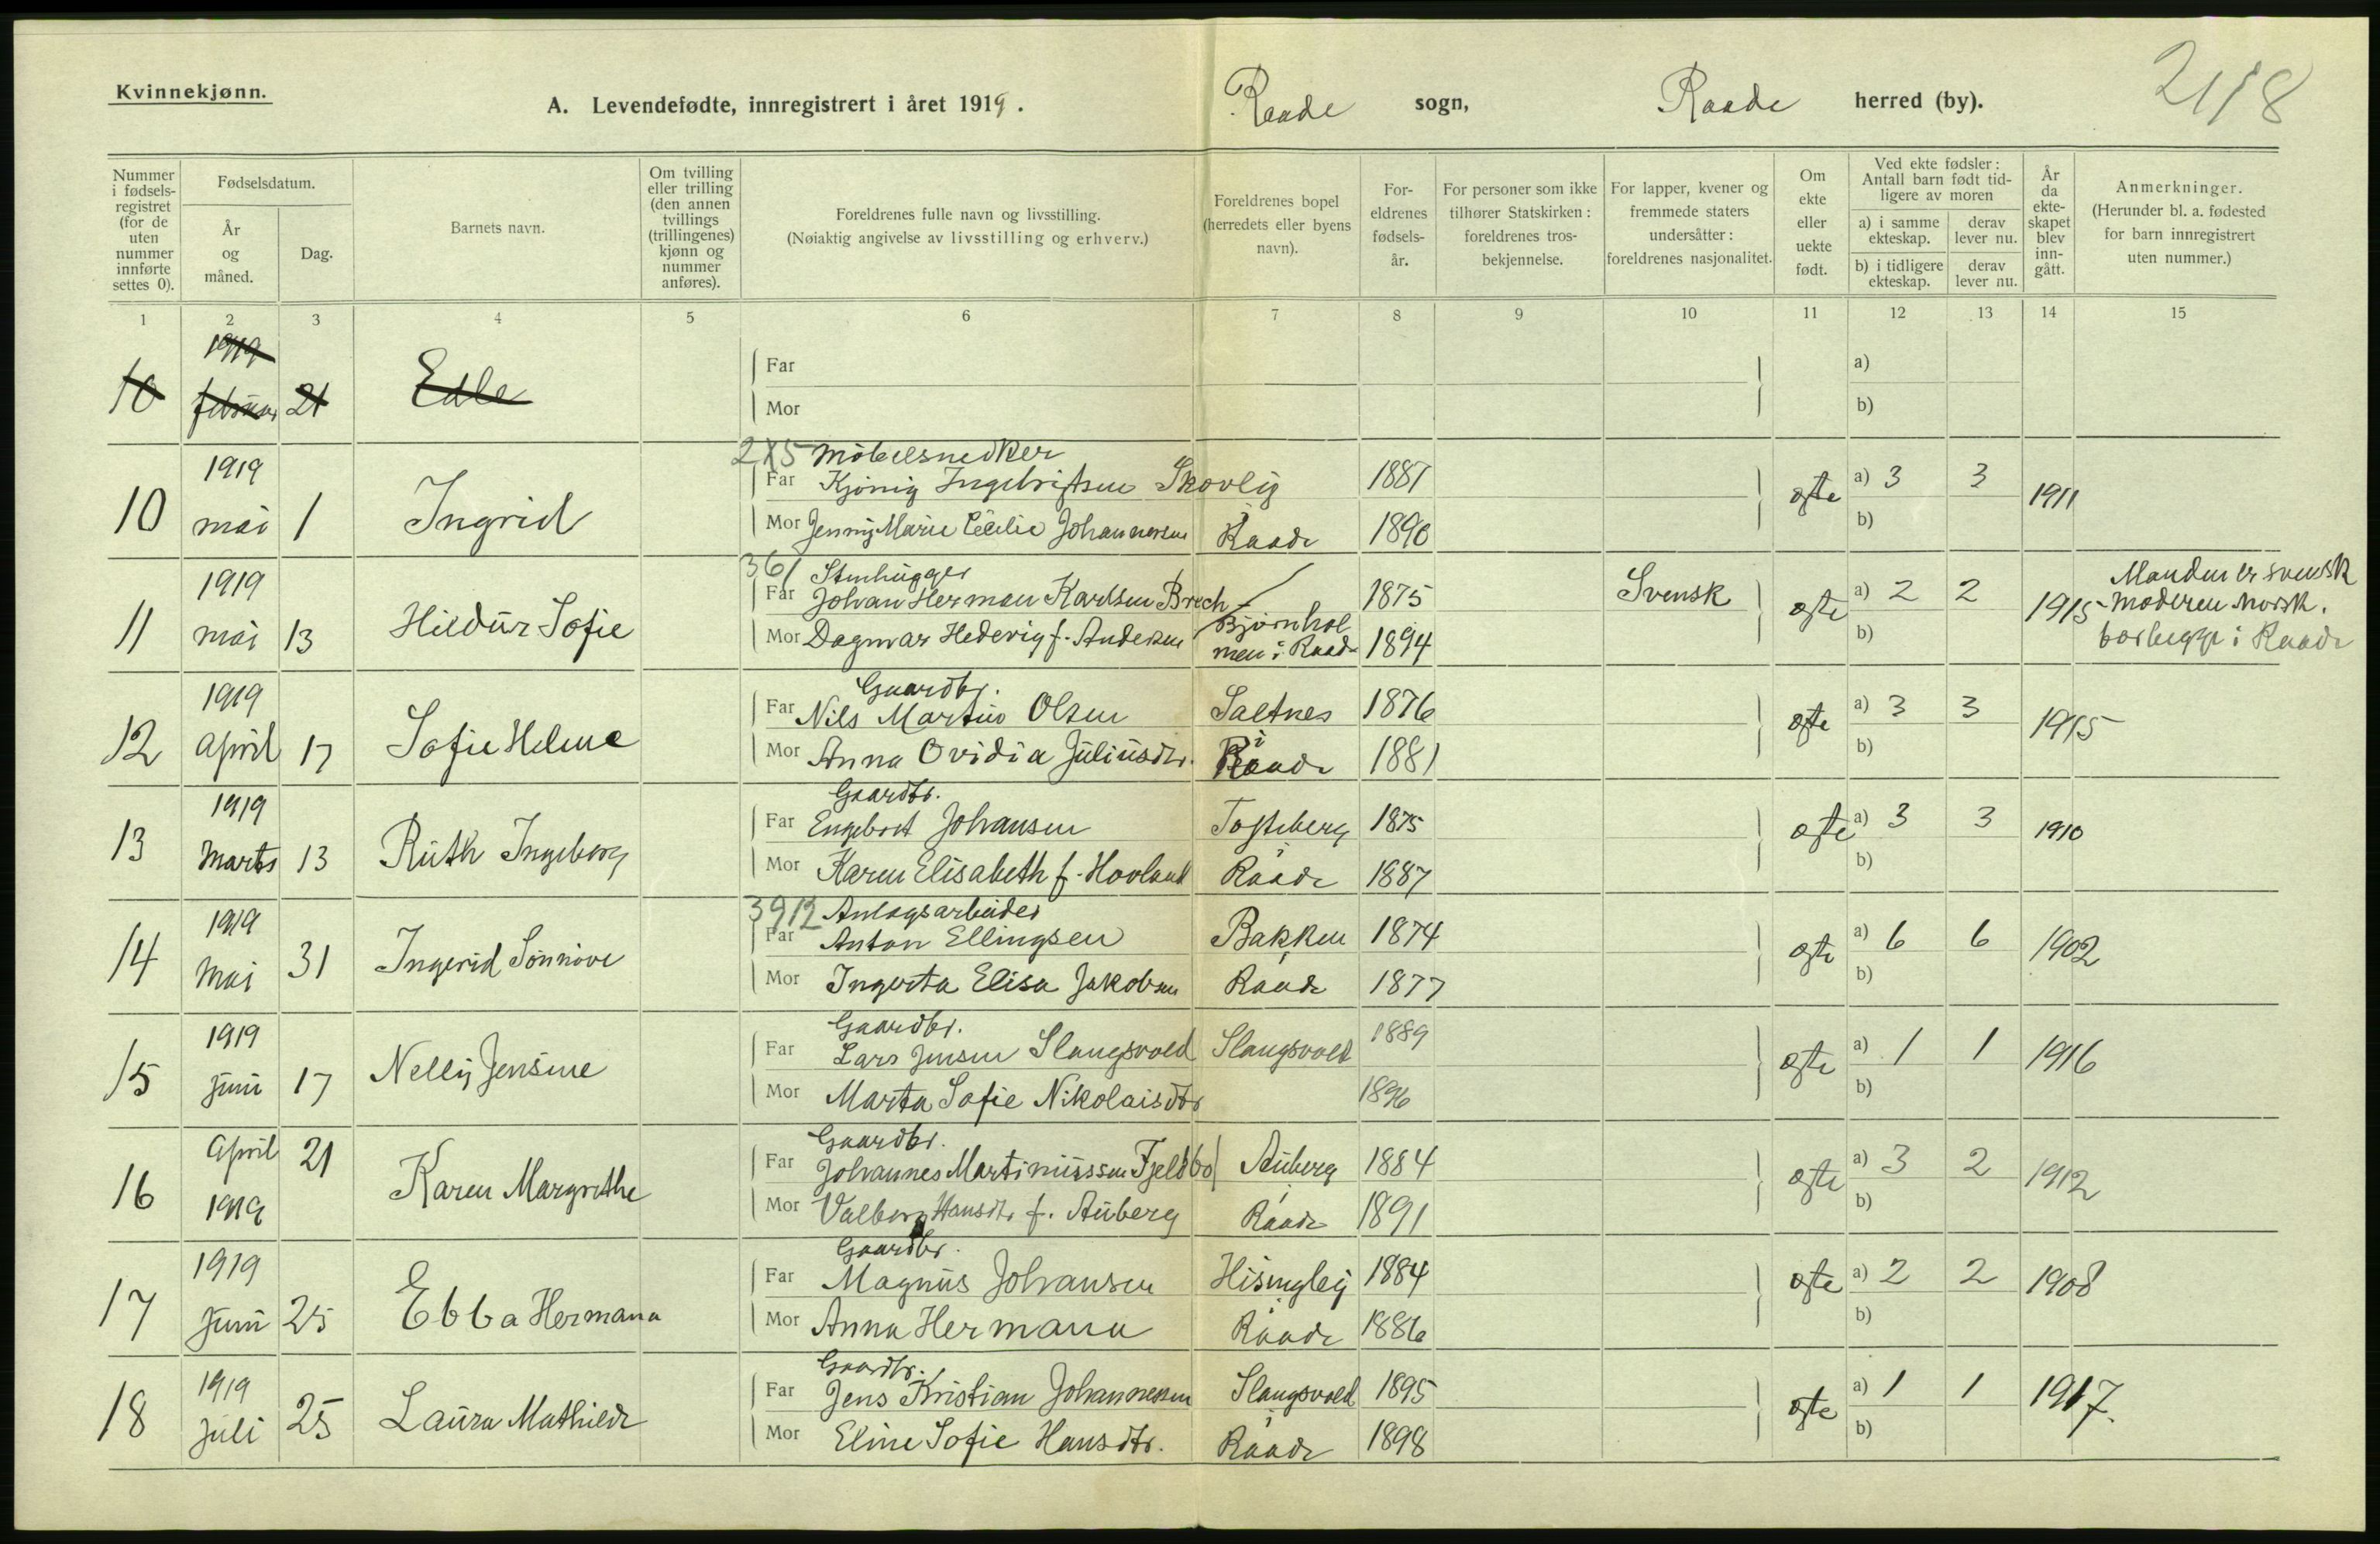 Kvinnekjønn.
A. Levendefødte, innregistrert i året 1919. Raade sogn, Raade herred (by). 2118
Nummer i fødselsregistret (for de uten nummer innførte settes 0).
Fødselsdatum.
År og måned.
Dag.
Barnets navn.
Om tvilling eller trilling (den annen tvillings (trillingenes) kjønn og nummer anføres).
Foreldrenes fulle navn og livsstilling.
(Nøiaktig angivelse av livsstilling og erhverv.)
Foreldrenes bopel (herredets eller byens navn).
Foreldrenes fødselsår.
For personer som ikke tilhører Statskirken: foreldrenes trosbekjennelse.
For lapper, kvener og fremmede staters undersåtter: foreldrenes nasjonalitet.
Om ekte eller uekte født.
Ved ekte fødsler: Antall barn født tidligere av moren
a) i samme ekteskap. derav lever nu.
b) i tidligere ekteskap. derav lever nu.
År da ekteskapet blev inngått.
Anmerkninger.
(Herunder bl. a. fødested for barn innregistrert uten nummer.)
1 2 3 4 5 6 7 8 9 10 11 12 13 14 15
1919
10 februar 21 Edle
Far a)
Mor b)
2X5 Möbelsnedker
10 1919 mai 1 Ingrid
Far Kjönig Ingebrigtsen Skovlij 1887 egte a) 3 3 1911
Mor Jenny Marie Cecilie Johannesen Raade 1890 b)
361 Stenhugger
11 1919 mai 13 Hildur Sofie
Far Johan Herman Karlsen Brech 1875 Svensk egte a) 2 2 1915
Mor Dagmar Hedevig f. Andersen Bjørnholmen i Raade 1894 b)
Manden er svensk
moderen norsk.
bor begge i Raade
Gaardbr.
12 1919 April 17 Sofie Helene
Far Nils Martin Olsen Saltnes 1876 egte a) 3 3 1915
Mor Anna Ovidia Juliusdtr. i Raade 1881 b)
Gaardbr.
13 1919 Marts 13 Ruth Ingeborg
Far Engebret Johansen Tofteberg 1875 egte a) 3 3 1910
Mor Karen Elisabeth f. Hovland i Raade 1887 b)
3912 Anlægsarbeider
14 1919 Mai 31 Ingerid Sønnøve
Far Anton Ellingsen Bakken 1874 egte a) 6 6 1902
Mor Ingerta Elisa Jakobsen i Raade 1877 b)
Gaardbr.
15 1919 Juni 17 Nelly Jensine
Far Lars Jensen Slangsvold Slangsvold 1889 egte a) 1 1 1916
Mor Marta Sofie Nikolaisdtr 1896 b)
Gaardbr.
16 April 1919 21 Karen Margrethe
Far Johannes Martiniussen Fjeldbo Auberg 1884 egte a) 3 2 1912
Mor Valborg Hansdtr f. Auberg i Raade 1891 b)
Gaardbr.
17 1919 Juni 25 Ebba Hermana
Far Magnus Johansen Hisingløy 1884 egte a) 2 2 1908
Mor Anna Hermana i Raade 1886 b)
Gaardbr.
18 1919 Juli 25 Laura Mathilde
Far Jens Kristian Johannessen Slangsvold 1895 egte a) 1 1 1917.
Mor Eline Sofie Hansdtr. i Raade 1898 b)